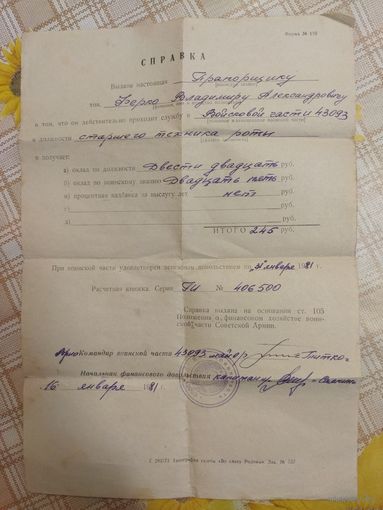 Форма № 156
СПРАВКА
Выдана настоящая Прапорщику
тов. Берко Владимиру Александровичу
в том, что он действительно проходит службу в Войсковой части 43093
в должности старшего техника роты
и получает:
а) оклад по должности Двести двадцать руб.
б) оклад по воинскому званию Двадцать пять руб.
в) процентная надбавка за выслугу лет нет руб.
г) руб.
д) руб.
ИТОГО 245 руб.
При воинской части удовлетворен денежным довольствием по 31 января 1981 г.
Расчетная книжка Серия ГИ № 406500
Справка выдана на основании ст. 105
Положения о финансовом хозяйстве воин-
ской части Советской Армии.
Командир воинской части 43093 майор
Начальник финансового довольствия капитан
16 января 1981 г.